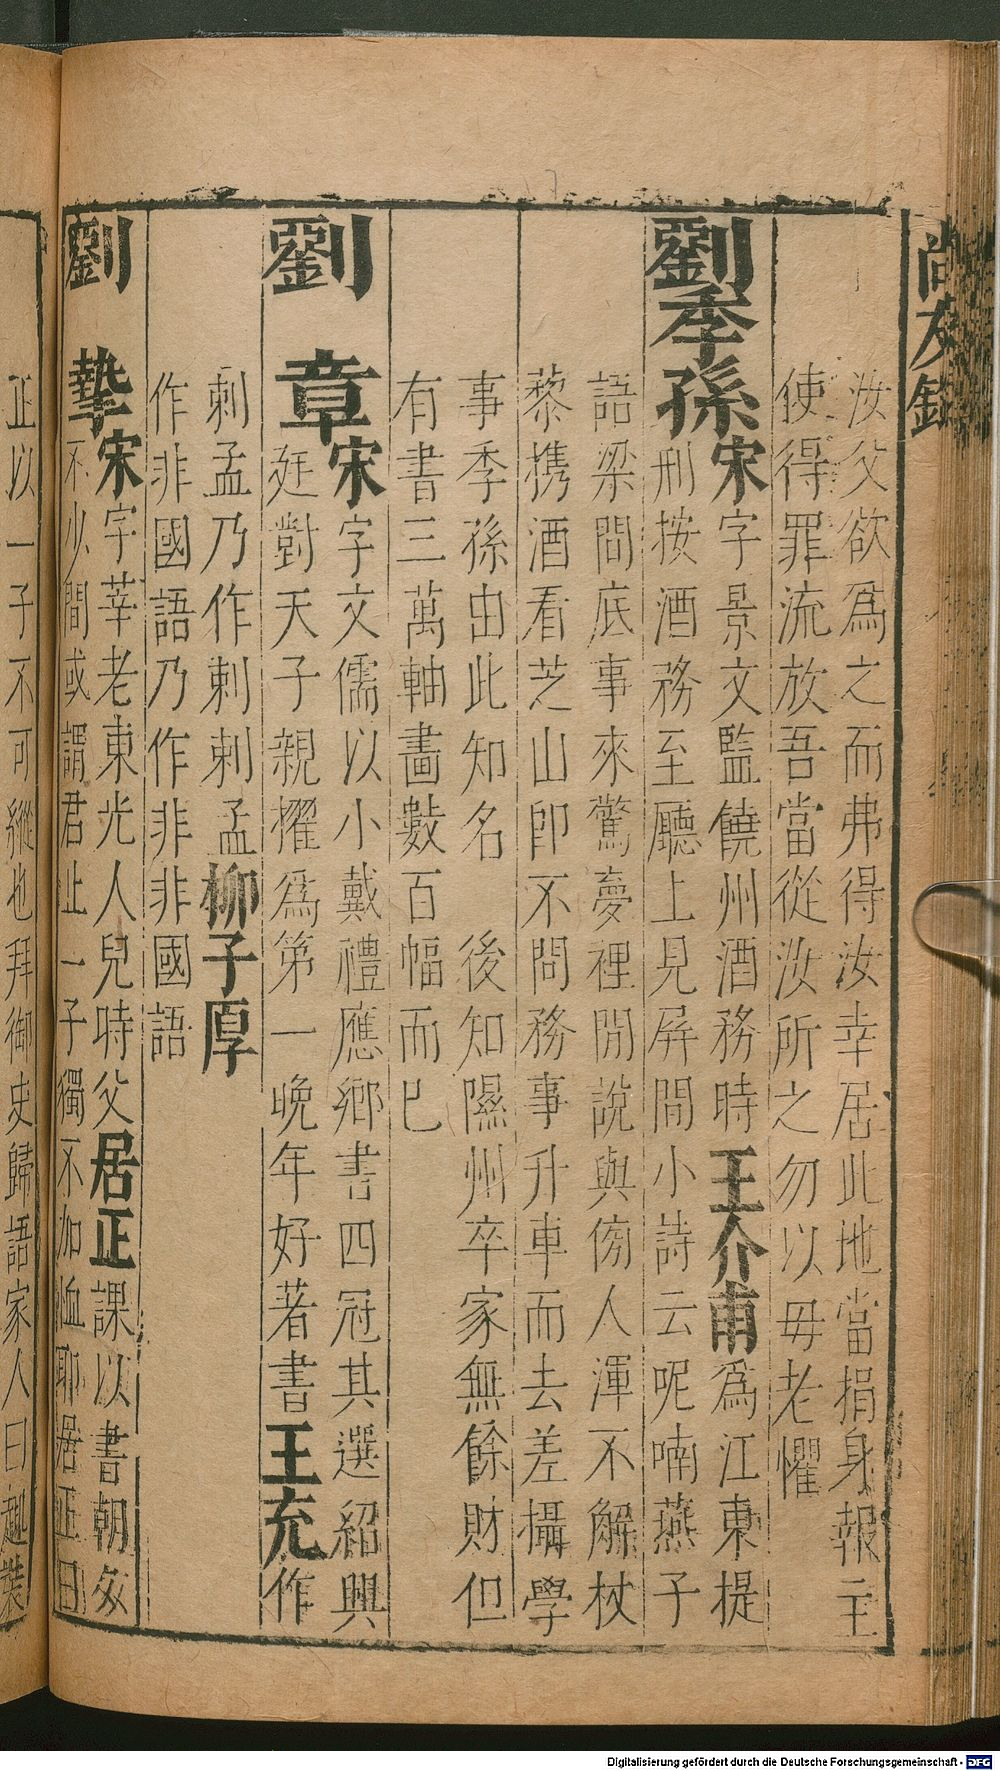 尚友錄
汝父欲爲之而弗得汝幸居此地當捐身報主
使得罪流放吾當從汝所之勿以毋老懼
劉季孫宋字景文監饒州酒務時王介甫爲江東提
刑按酒務至廳上見屏間小詩云呢喃燕子
語梁間底事來驚夢裡閒說與傍人渾不解杖
藜携酒看芝山卽不問務事升車而去差攝學
事季孫由此知名 後知隰州卒家無餘財但
有書三萬軸畵數百幅而已
劉 章宋字文儒以小戴禮應鄉書四冠其選紹興
廷對天子親擢爲第一晚年好著書王充作
刺孟乃作刺刺孟柳子厚
作非國語乃作非非國語
劉 摯宋字莘老東光人兒時父居正課以書朝夕
不少間或謂君止一子獨不加恤耶居正曰
正以一子不可縱也拜御史歸語家人曰趣裝
Digitalisierung gefördert durch die Deutsche Forschungsgemeinschaft - DFG